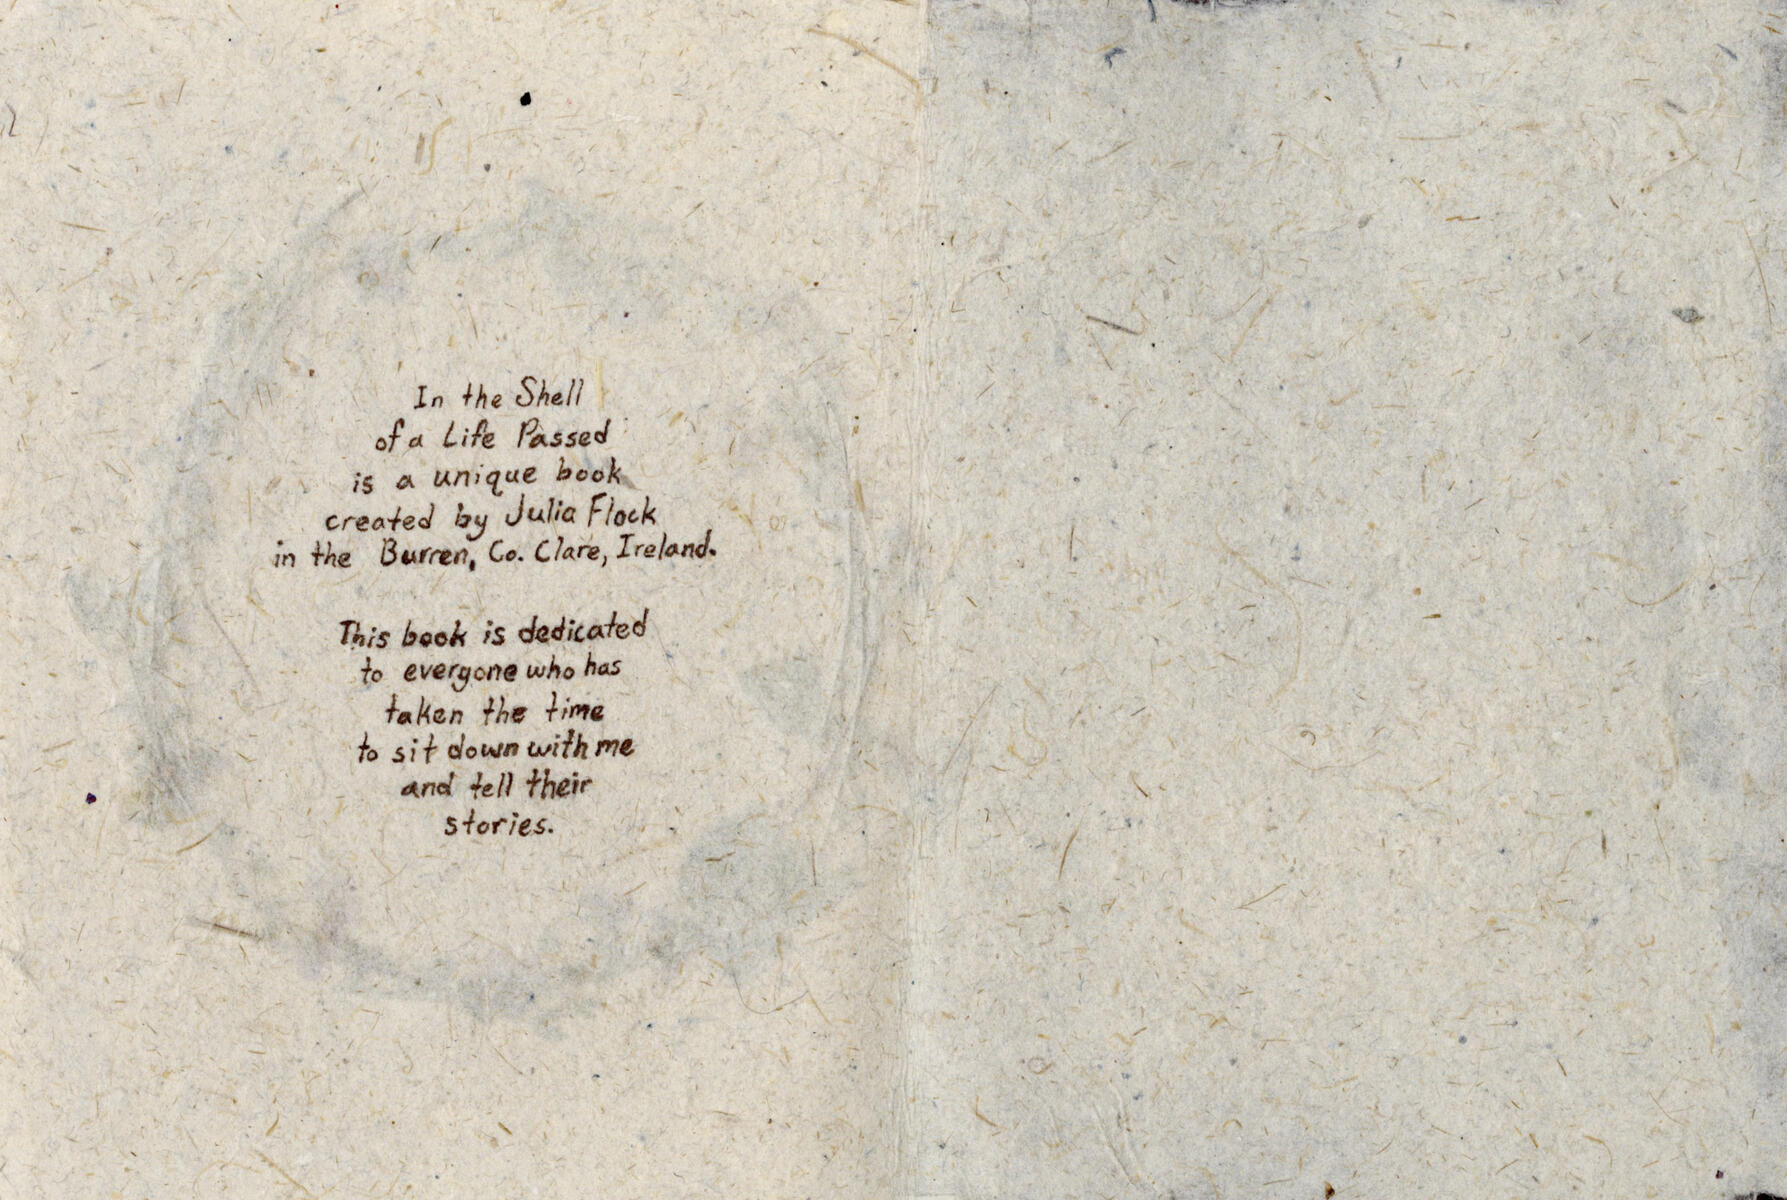 In the Shell
of a Life Passed
is a unique book
created by Julia Flock
in the Burren, Co. Clare, Ireland.
This book is dedicated
to everyone who has
taken the time
to sit down with me
and tell their
stories.